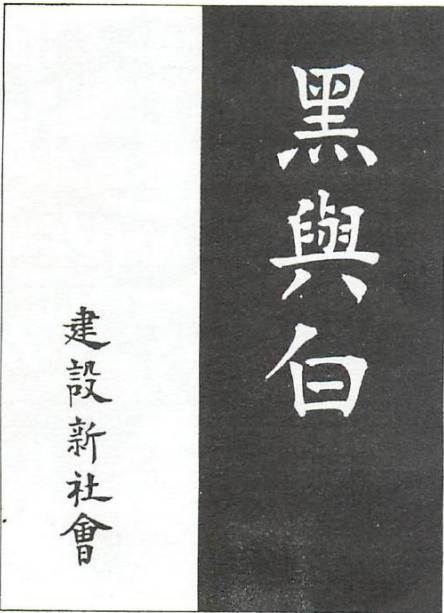 黑與白
建設新社會